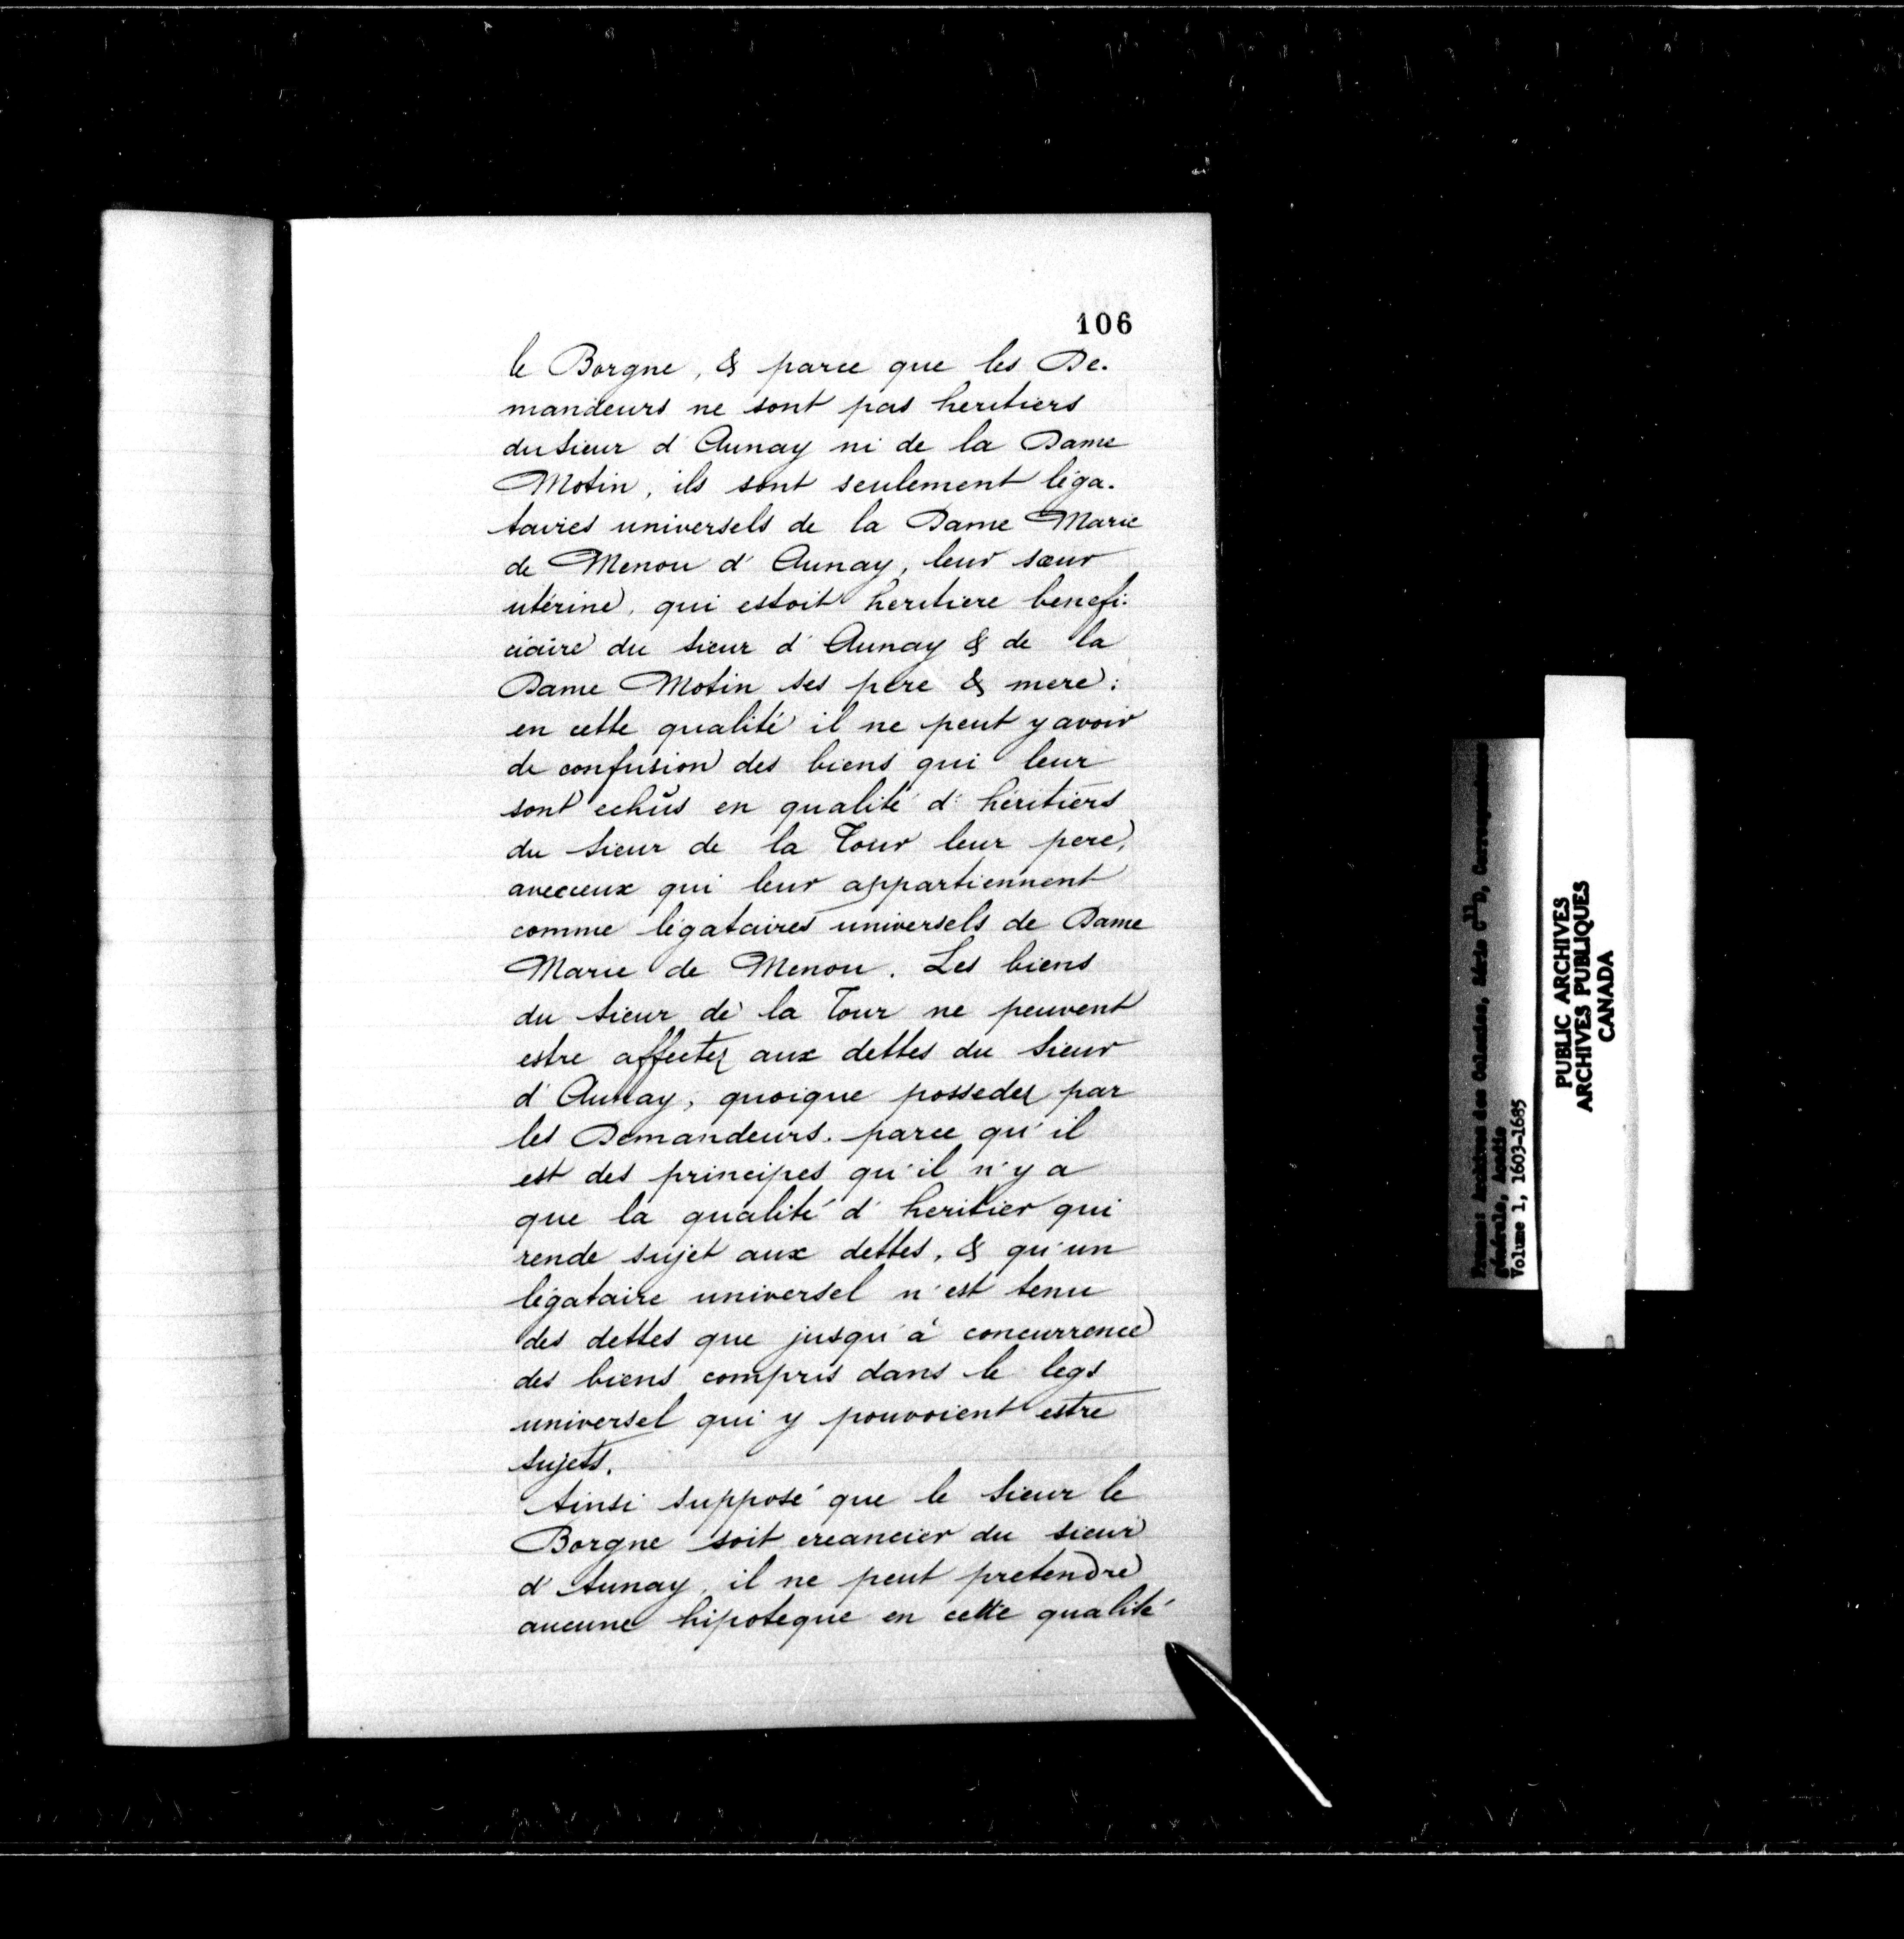 106
le Borgne, & parce que les De-
mandeurs ne sont pas heritiers
du sieur d'Aunay ni de la Dame
Motin, ils sont seulement léga-
taires universels de la Dame Marie
de Menou d'Aunay, leur sœur
utérine, qui estoit heritiere benefi-
ciaire du sieur d'Aunay & de la
Dame Motin ses pere & mere:
en cette qualité il ne peut y avoir
de confusion des biens qui leur
sont echûs en qualité d'héritiers
du sieur de la Tour leur pere,
avec ceux qui leur appartiennent
comme légataires universels de Dame
Marie de Menou. Les biens
du sieur de la Tour ne peuvent
estre affectez aux dettes du sieur
d'Aunay, quoique possedez par
les Demandeurs. parce qu'il
est des principes qu'il n'y a
que la qualité d'heritier qui
rende sujet aux dettes, & qu'un
légataire universel n'est tenu
des dettes que jusqu'à concurrence
des biens compris dans le legs
universel qui y pouvoient estre
sujets.
Ainsi supposé que le sieur le
Borgne soit creancier du sieur
d'Aunay, il ne peut pretendre
aucune hipoteque en cette qualité
France: Archives des Colonies, Série C11D, Correspondance
générale, Acadie
Volume 1, 1603-1685
PUBLIC ARCHIVES
ARCHIVES PUBLIQUES
CANADA